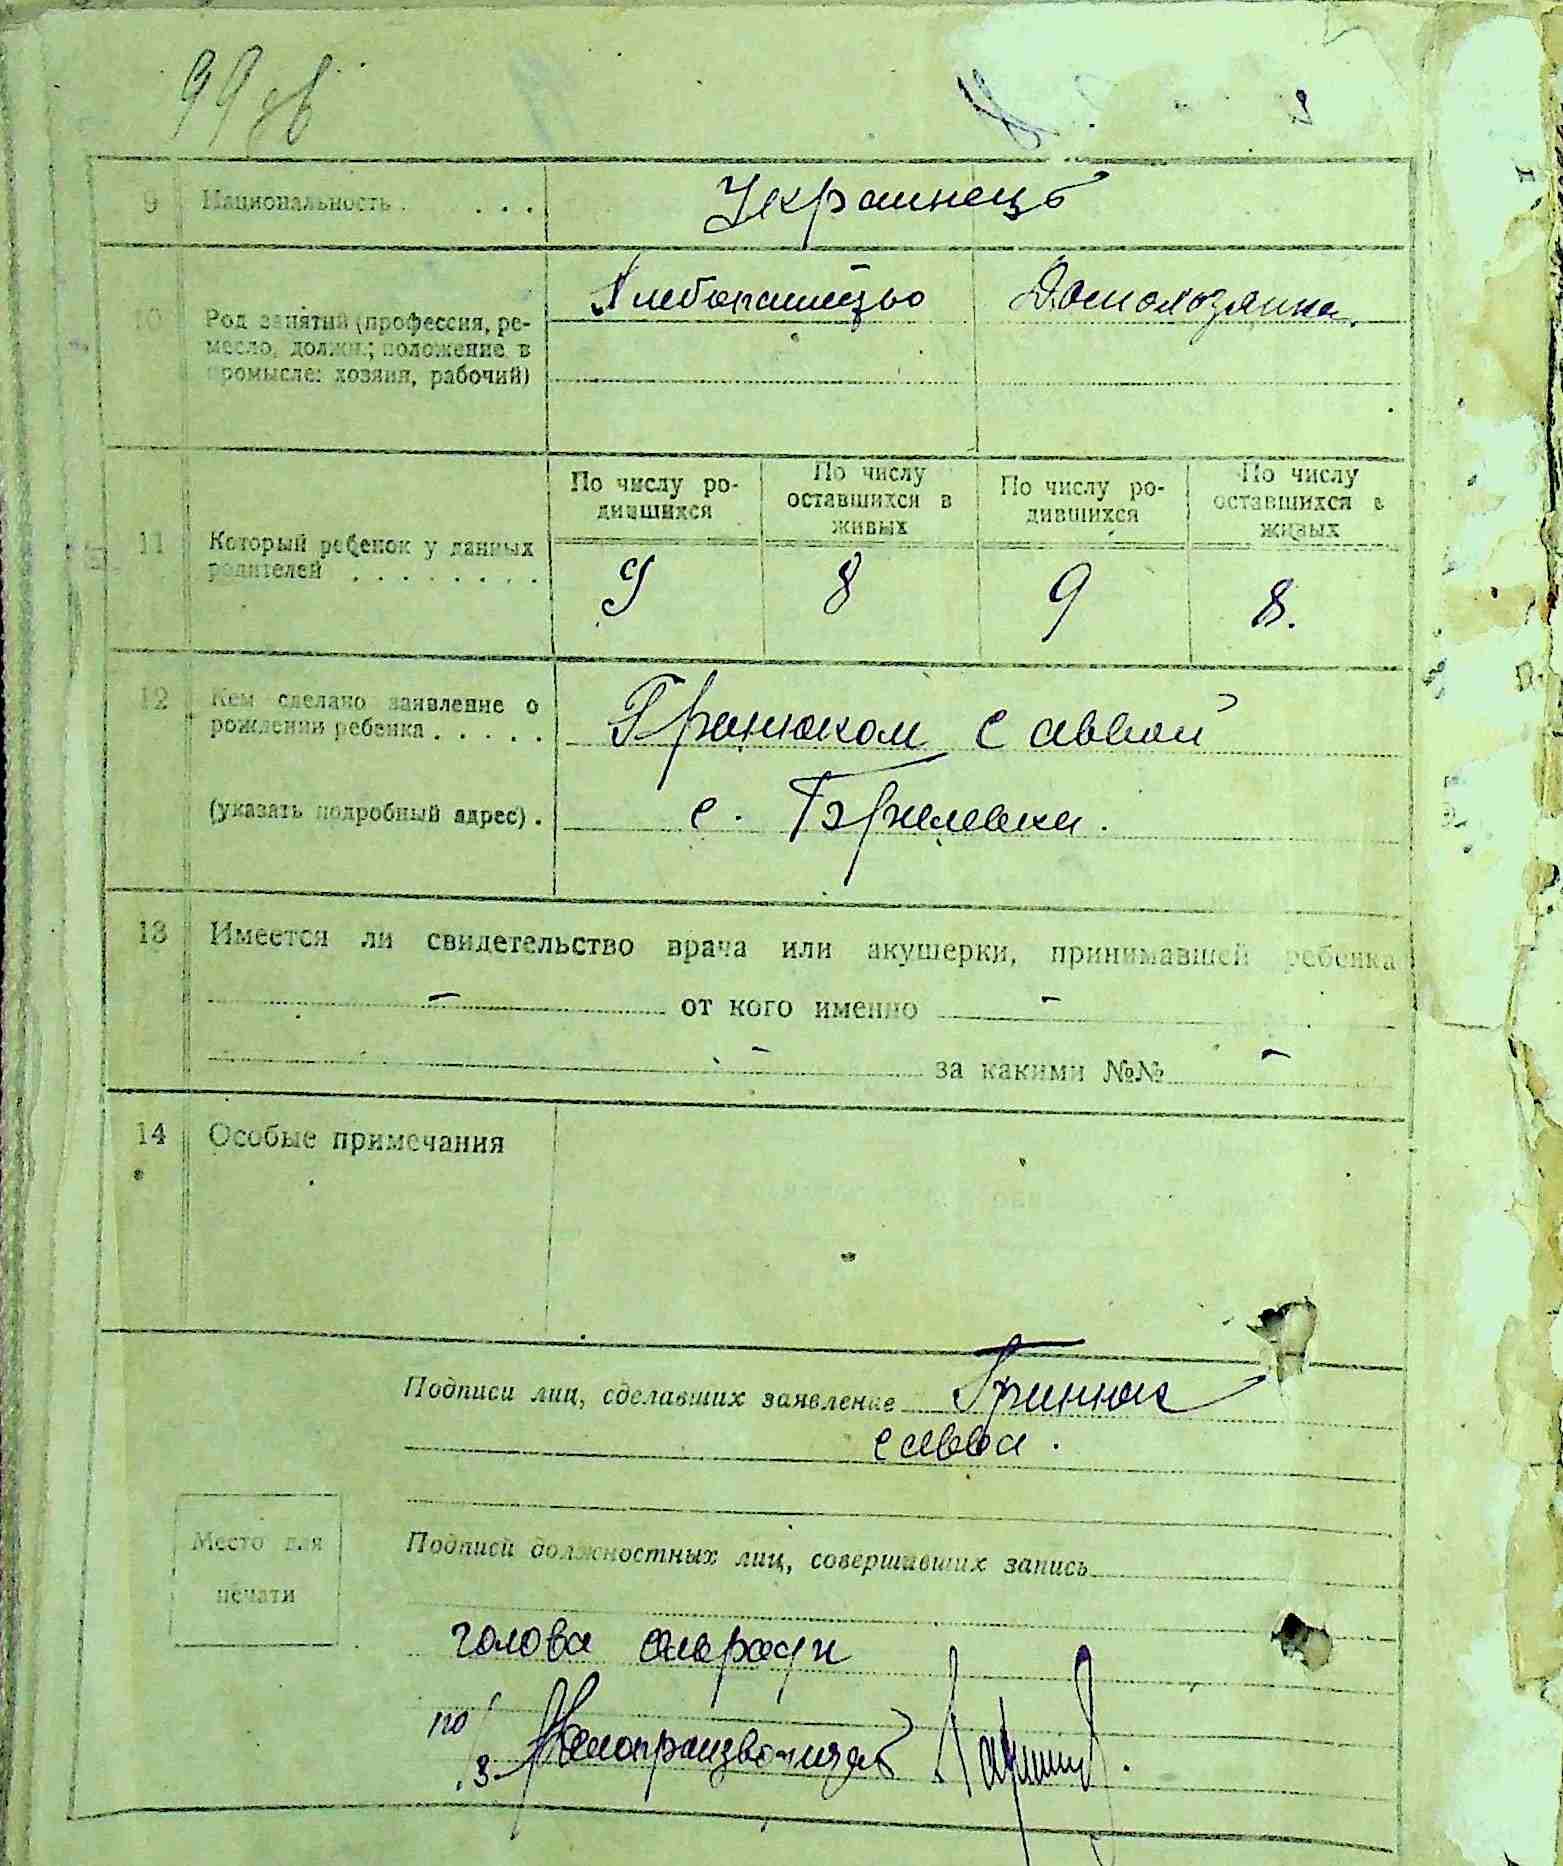 99 зв
9 Национальность . . . . Украинець
10 Род занятий (профессия, ре-
месло, должн.; положение в
промысле: хозяин, рабочий)
Хлебопашецъо Домохозяика.
11 Который ребенок у данных
родителей . . . . . . . .
По числу ро-
дившихся
По числу
оставшихся в
живых
По числу ро-
дившихся
По числу
оставшихся в
живых
9 8 9 8.
12 Кем сделано заявление о
рождении ребенка . . . . . Гринюком Саввой
(указать подробный адрес) . с. Бриленки.
13 Имеется ли свидетельство врача или акушерки, принимавшей ребенка
– от кого именно –
– за какими №№ –
14 Особые примечания
Подписи лиц, сделавших заявление Гринюк
Савва.
Место для
печати
Подписи должностных лиц, совершивших запись
голова сельради
Делопроизводитель